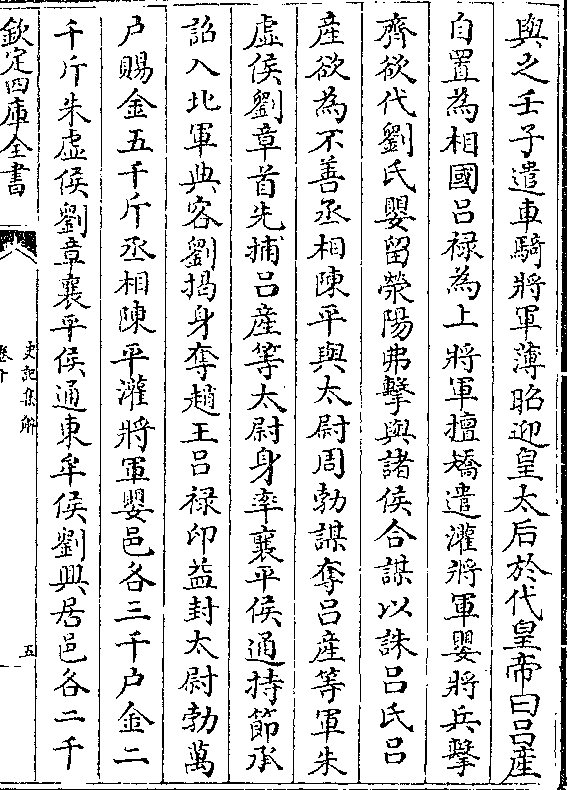 與之壬子遣車騎將軍薄昭迎皇太后於代皇帝曰呂產
自置為相國呂禄為上將軍擅矯遣灌將軍嬰將兵擊
齊欲代劉氏嬰留滎陽弗擊與諸侯合謀以誅呂氏呂
產欲為不善丞相陳平與太尉周勃謀奪呂產等軍朱
虛侯劉章首先捕呂產等太尉身率襄平侯通持節承
詔入北軍典客劉揭身奪趙王呂禄印益封太尉勃萬
户賜金五千斤丞相陳平灌將軍嬰邑各三千户金二
千斤朱虛侯劉章襄平侯通東牟侯劉興居邑各二千
欽定四庫全書
史記集解
卷十
五